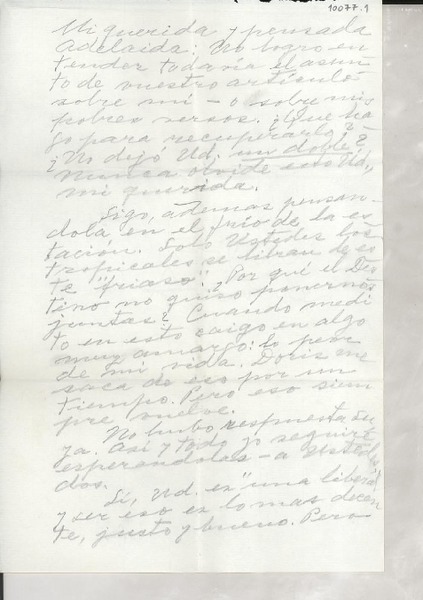 10077.1
Mi querida y pensada
Adelaida: No logro en
tender todavía el asun
to de vuestro artículo
sobre mí - o sobre mis
pobres versos. ¿Qué ha
go para recuperarlo?
¿No dejó Ud. un doble?
Nunca olvide eso Ud.,
mi querida.
Sigo, además pensan-
dola en el frío de la es
tación. Solo Ustedes los
tropicales se libran de es
te "friaso". ¿Por qué el Des
tino no quiso ponernos
juntas? Cuando medi
to en esto caigo en algo
muy amargo: lo peor
de mi vida. Doris me
saca de eso por un
tiempo. Pero eso siem
pre vuelve.
No hubo respuesta su
ya. Así y todo yo seguiré
esperandolas - a Ustedes
dos.
Sí, Ud. es "una liberal"
y ser eso es lo mas decen
te, justo y bueno. Pero